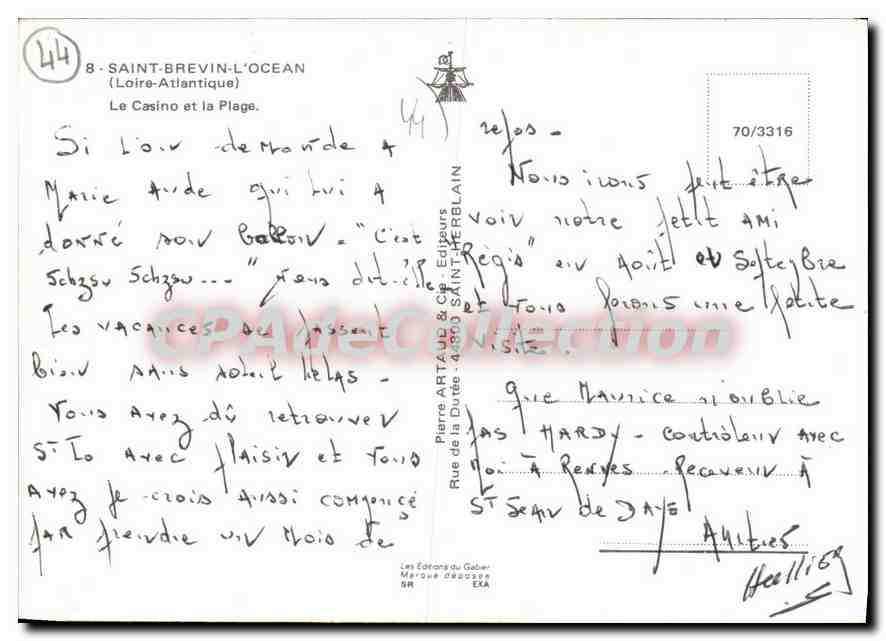 44
8 - SAINT-BREVIN-L'OCEAN
(Loire-Atlantique)
Le Casino et la Plage.
Si l'on demande a
Marie Aude qui lui a
donné son ballon - "C'est
Schzsu Schzsu ---" dit-elle-
Les vacances se passent
bien sans soleil hélas -
Vous avez dû retrouver
St Lo avec plaisir et vous
avez je crois aussi commencé
par prendre un mois de
44
Pierre ARTAUD & Cie - Editeurs
Rue de la Dutée - 44800 SAINT-HERBLAIN
70/3316
repos -
Nous irons peut être
voir notre petit ami
"Régis" en Août ou Septembre
et vous ferons une petite
visite.
Que Maurice n'oublie
pas HARDY - contrôleur avec
moi à Rennes - Receveur à
St Jean de Daye
Amitiés
Les Editions du Gabier
Marque déposée
SR EXA
CPAdeCollection